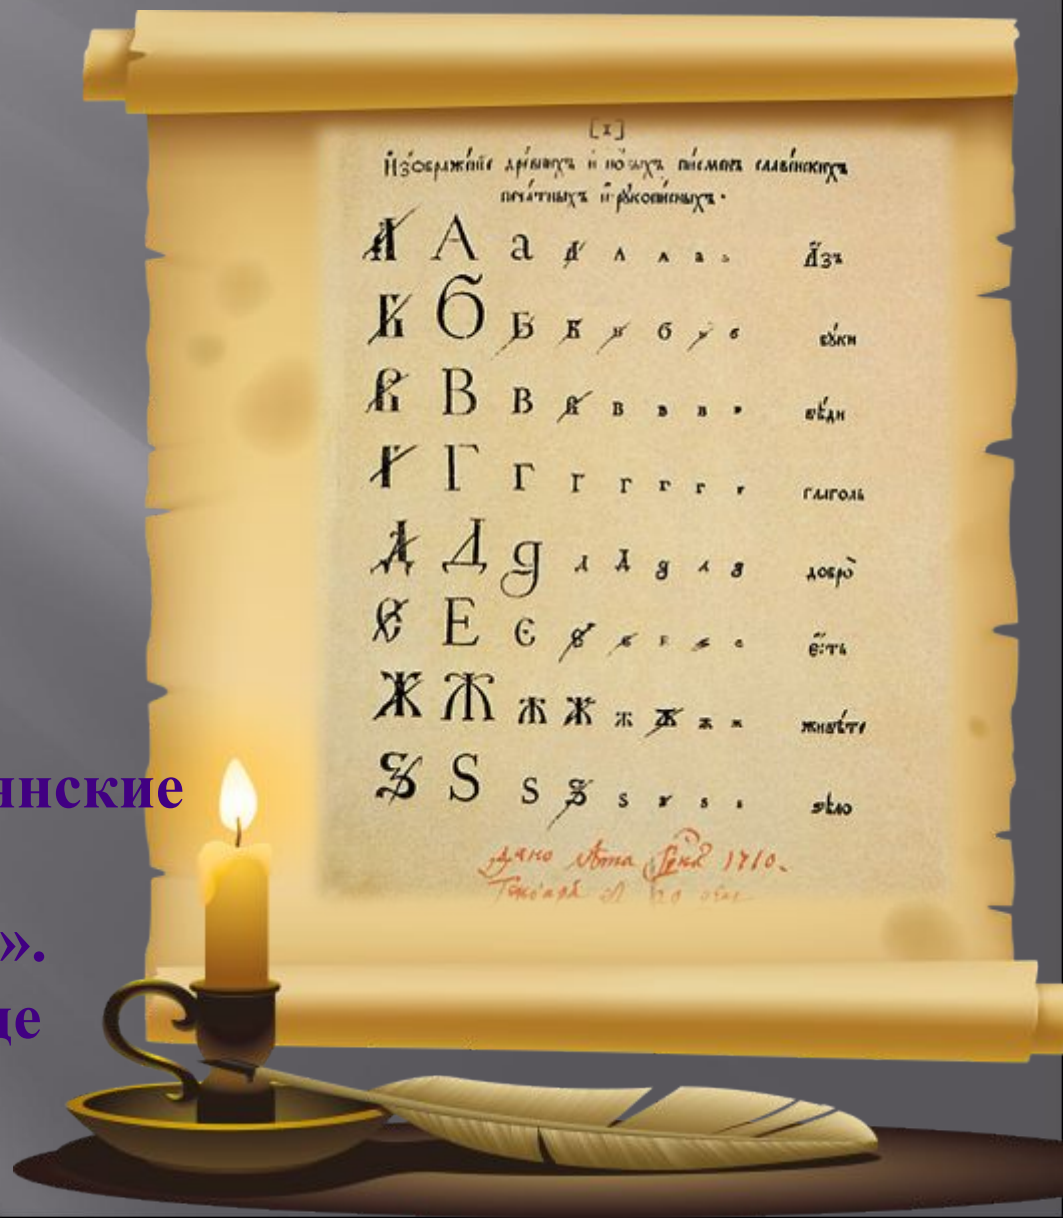 [1]
И҆зображе́нїе дре́внихъ и҆ но́выхъ пи́сменъ славе́нскихъ
печа́тныхъ и҆ рꙋкопи́сныхъ.
А А а а а а а а А҆́зъ
Б Б Б Б Б б б б бꙋ́ки
В В В В В В В В вѣ́ди
Г Г Г Г Г Г Г Г глаго́ль
Д Д д д Д д д д добро̀
Є Е є є є Е є є е҆́сть
Ж Ж ж ж ж ж ж ж живѣ́те
Ѕ Ѕ ѕ ѕ ѕ ѕ ѕ ѕ ѕѣло̀
Дано лѣта 1710.
янские
».
це